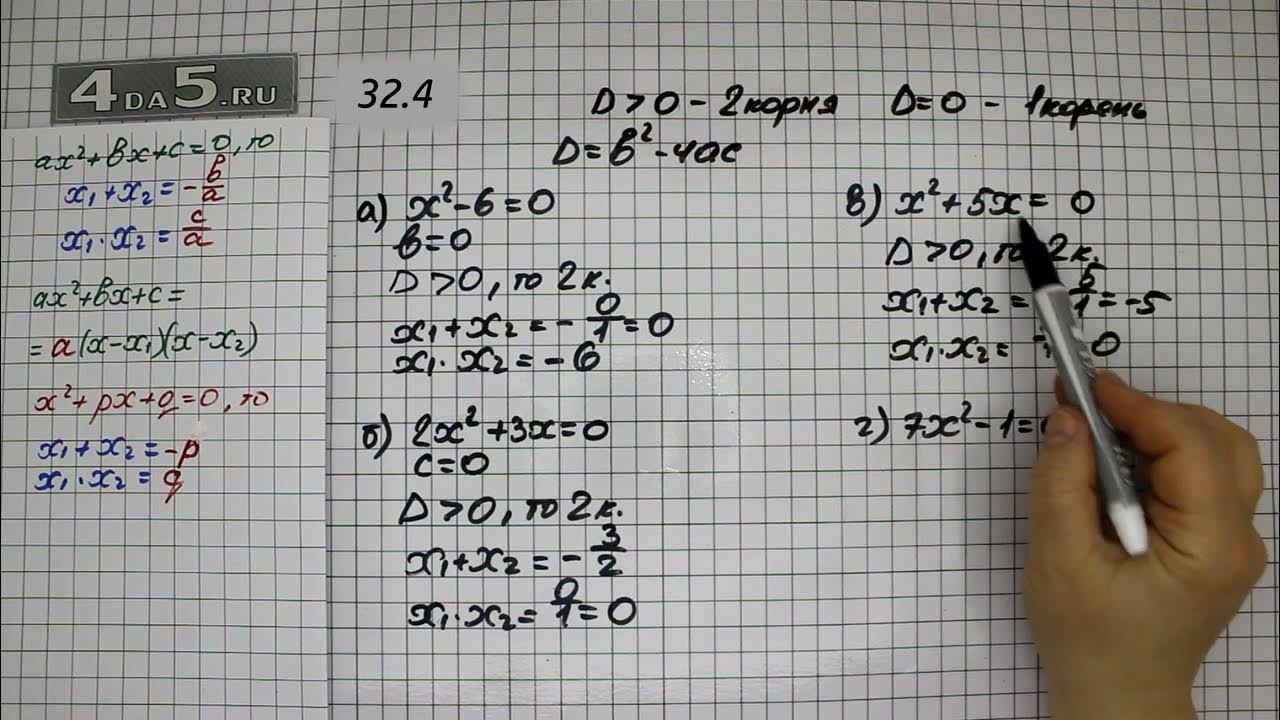 4DA5.RU
ax²+bx+c=0, то
x₁+x₂=-b/a
x₁·x₂=c/a
ax²+bx+c=
=a(x-x₁)(x-x₂)
x²+px+q=0, то
x₁+x₂=-p
x₁·x₂=q
32.4
D>0-2корня D=0-1корень
D=b²-4ac
а) x²-6=0
b=0
D>0, то 2к.
x₁+x₂=-0/1=0
x₁·x₂=-6
б) 2x²+3x=0
c=0
D>0, то 2к.
x₁+x₂=-3/2
x₁·x₂=0/1=0
в) x²+5x=0
D>0, то 2к.
x₁+x₂= 5/1=-5
x₁·x₂= 0
г) 7x²-1=